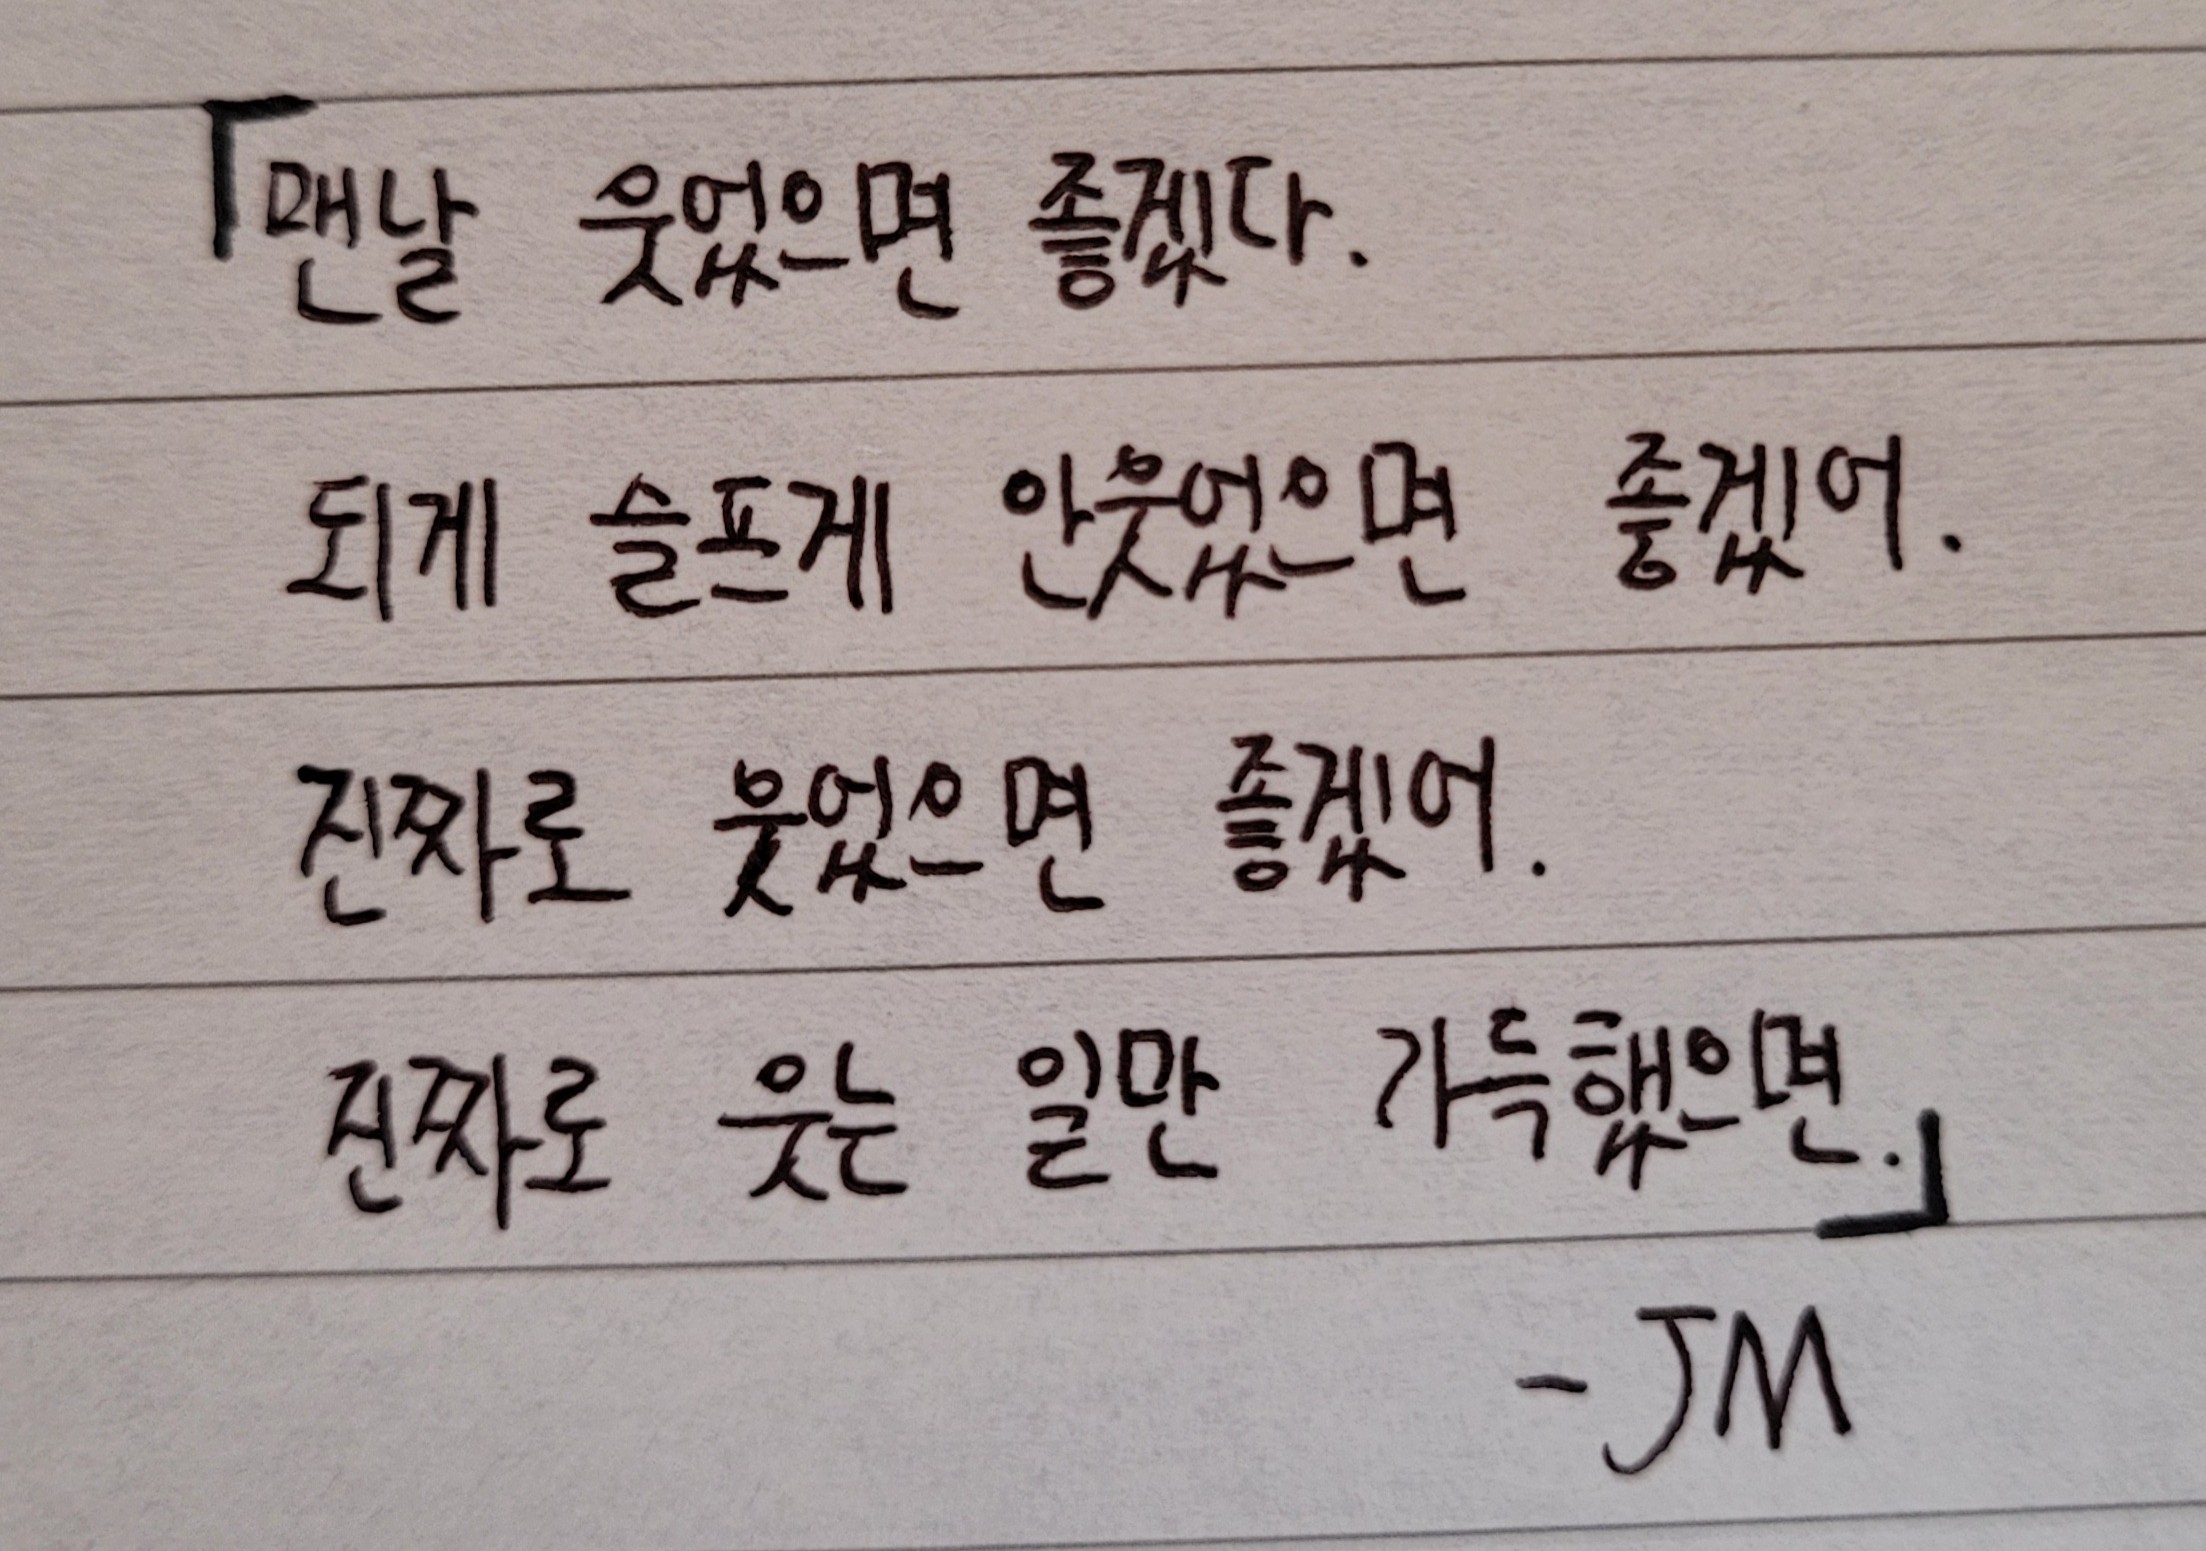 「맨날 웃었으면 좋겠다.
되게 슬프게 안웃었으면 좋겠어.
진짜로 웃었으면 좋겠어.
진짜로 웃는 일만 가득했으면.」
-JM